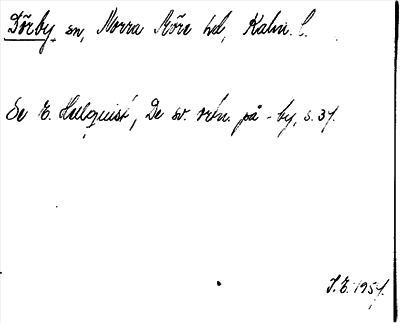 Dörby sn, Norra Möre hd, Kalm. l.
Se E. Hellquist, De sv. ortn. på -by, s. 37.
I.E. 1957.